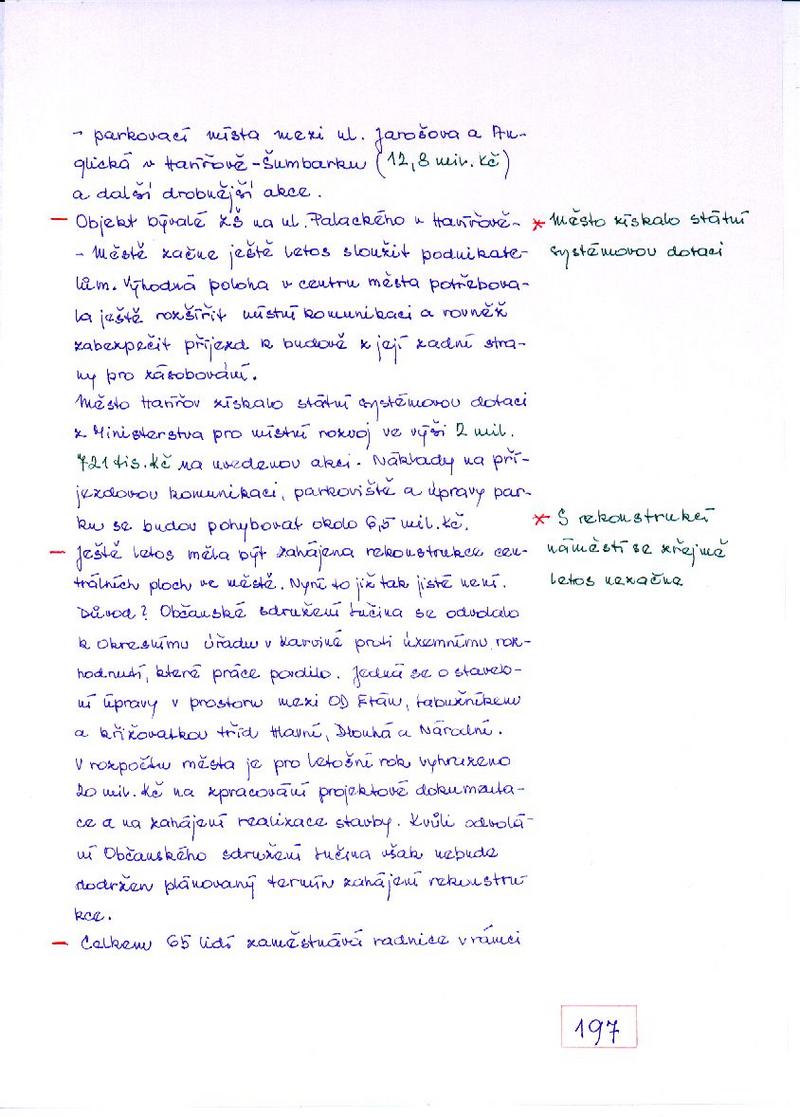 - parkovací místa mezi ul. Jarošova a An-
glická v Havířově-Šumbarku (12,8 mil. Kč)
a další drobnější akce.
— Objekt bývalé ZŠ na ul. Palackého v Havířově-
- Městě začne ještě letos sloužit podnikate-
lům. Výhodná poloha v centru města potřebova-
la ještě rozšířit místní komunikaci a rovněž
zabezpečit příjezd k budově z její zadní stra-
ny pro zásobování.
Město Havířov získalo státní systémovou dotaci
z Ministerstva pro místní rozvoj ve výši 2 mil.
721 tis. Kč na uvedenou akci. Náklady na pří-
jezdovou komunikaci, parkoviště a úpravy par-
ku se budou pohybovat okolo 6,5 mil. Kč.
— Ještě letos měla být zahájena rekonstrukce cen-
trálních ploch ve městě. Nyní to již tak jisté není.
Důvod? Občanské sdružení Lučina se odvolalo
k Okresnímu úřadu v Karviné proti územnímu roz-
hodnutí, které práce povolilo. Jedná se o staveb-
ní úpravy v prostoru mezi OD Elán, Labužníkem
a křižovatkou tříd Hlavní, Dlouhá a Národní.
V rozpočtu města je pro letošní rok vyhrazeno
20 mil. Kč na zpracování projektové dokumenta-
ce a na zahájení realizace stavby. Kvůli odvolá-
ní Občanského sdružení Lučina však nebude
dodržen plánovaný termín zahájení rekonstru-
kce.
— Celkem 65 lidí zaměstnává radnice v rámci
* Město získalo státní
systémovou dotaci
* S rekonstrukcí
náměstí se zřejmě
letos nezačne
197